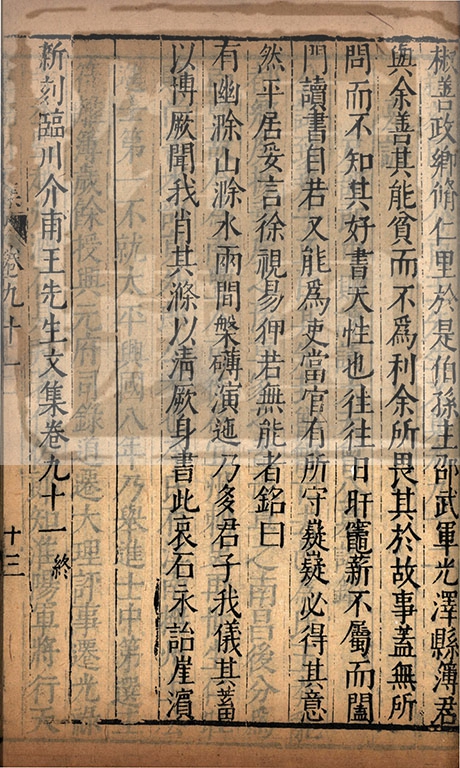 椒善政鄉脩仁里於是伯孫主邵武軍光澤縣簿君
與余善其能貧而不爲利余所畏其於故事葢無所
問而不知其好書天性也往往日旰竈薪不屬而闔
門讀書自若又能爲吏當官有所守嶷嶷必得其意
然平居妥言徐視易狎若無能者銘曰
有幽滁山滁水兩間槃礴演迤乃多君子我儀其蓄
以博厥聞我肖其滌以清厥身書此哀石永詒崖濱
新刻臨川介甫王先生文集卷九十一終
卷九十一
十三